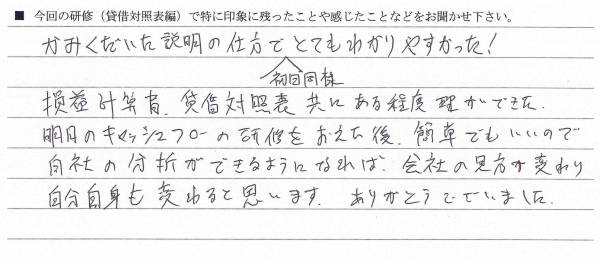 ■ 今回の研修（貸借対照表編）で特に印象に残ったことや感じたことなどをお聞かせ下さい。
かみくだいた説明の仕方でとてもわかりやすかった！
初回同様
損益計算書、貸借対照表 共にある程度理解できた。
明日のキャッシュフローの研修をおえた後、簡単でもいいので
自社の分析ができるようになれば、会社の見方が変わり
自分自身も変わると思います。ありがとうございました。